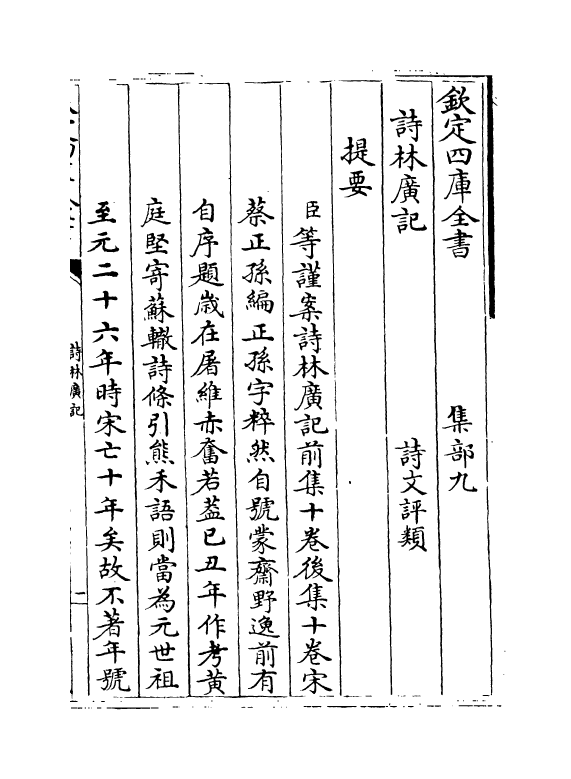 欽定四庫全書 集部九
詩林廣記 詩文評類
提要
臣等謹案詩林廣記前集十卷後集十卷宋
蔡正孫編正孫字粹然自號蒙齋野逸前有
自序題歳在屠維赤奮若葢已丑年作考黃
庭堅寄蘇轍詩條引熊禾語則當為元世祖
至元二十六年時宋亡十年矣故不著年號
詩林廣記